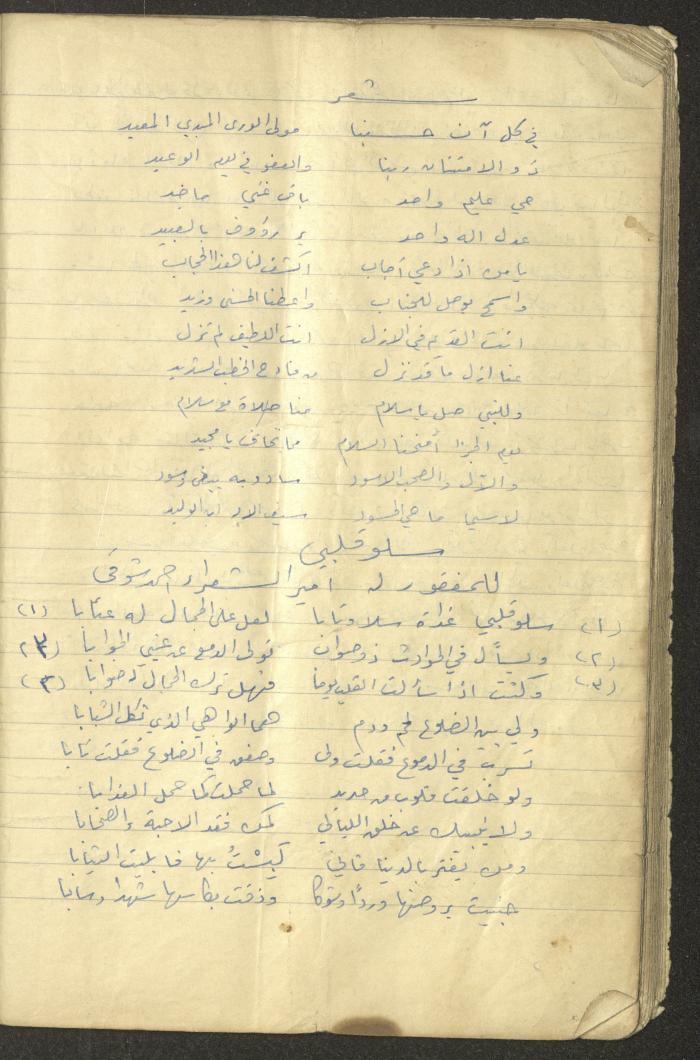 شعر
في كل آن حسبنا مولى الورى المبدي المعيد
ذو الامتنان ربنا والعفو في يوم الوعيد
حي عليم واحد باق غني ماجد
عدل اله واحد بر رؤوف بالعبيد
يا من اذا دعي أجاب اكشف لنا هذا الحجاب
واسمح بوصل للجناب واعطنا الحسنى وزيد
انت القديم في الازل انت اللطيف لم تزل
عنا ازل ما قد نزل من فادح الخطب الشديد
وللنبي صل يا سلام منا صلاة مع سلام
يوم الجزا أمنحنا السلام مما نخاف يا مجيد
والآل والصحب الاسود سادوا به بيض وسود
لاسيما ماحي الحسود سيف الاله ابن الوليد
سلو قلبي
للمغفور له امير الشعراء احمد شوقي
(١) سلو قلبي غداة سلا وتابا لعل على الجمال له عتابا (١)
(٢) ويسأل في الحوادث ذو صواب تولى الدمع عن عيني الجوابا (٢)
(٣) وكنت اذا سألت القلب يوما فهل ترك الجمال له صوابا (٣)
ولي بين الضلوع لحم ودم هما الواهي الذي ثكل الشبابا
تسرب في الدموع فقلت ولى وصفق في الضلوع فقلت ثابا
ولو خلقت قلوب من حديد لما حملت كما حمل العذابا
ولا ينبيك عن خلق الليالي كمن فقد الاحبة والصحابا
ومن يغتر بالدنيا فاني لبست بها فابليت الثيابا
جنيت بروضها وردا وشوكا وذقت بكاسها شهدا وصابا